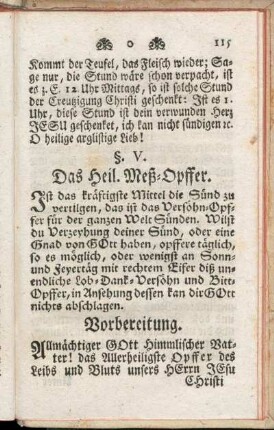 o 115
Kommt der Teufel, das Fleisch wieder; Sa-
ge nur, die Stund wäre schon verpacht, ist
es z. E. 12. Uhr Mittags, so ist solche Stund
der Creutzigung Christi geschenkt: Ist es 1.
Uhr, diese Stund ist dem verwunden Hertz
JESU geschenket, ich kan nicht sündigen ꝛc.
O heilige arglistige Lieb!
§. V.
Das Heil. Meß-Opffer.
Ist das kräftigste Mittel die Sünd zu
vertilgen, das ist das Versöhn-Opf-
fer für der ganzen Welt Sünden. Wilst
du Verzeyhung deiner Sünd, oder eine
Gnad von GOtt haben, opffere täglich,
so es möglich, oder wenigst an Sonn-
und Feyertäg mit rechtem Eifer diß un-
endliche Lob-Dank-Versöhn und Bitt-
Opffer, in Ansehung dessen kan dir GOtt
nichts abschlagen.
Vorbereitung.
Allmächtiger GOtt Himmlischer Vat-
ter! das Allerheiligste Opffer des
Leibs und Bluts unsers HErrn JEsu
CHristi